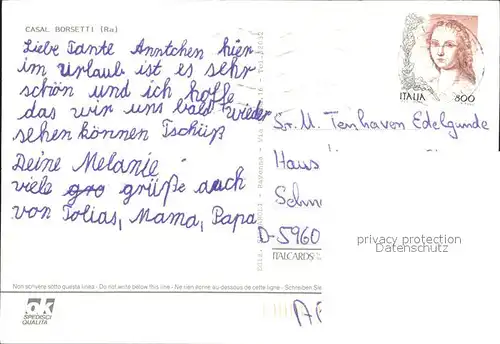 CASAL BORSETTI (Ra)
Liebe Tante Änntchen hier
im Urlaub ist es sehr
schön und ich hoffe
das wir uns bald wieder
sehen können Tschüß
Deine Melanie
viele gro grüße auch
von Tolias, Mama, Papa
ITALIA 800
Sr. M. Tenhaven Edelgunde
Haus
Schm
D-5960
privacy protection
Datenschutz
ITALCARDS
Non scrivere sotto questa linea - Do not write below this line - Ne rien écrire au-dessous de cette ligne - Schreiben Sie
ok
SPEDISCI
QUALITÀ